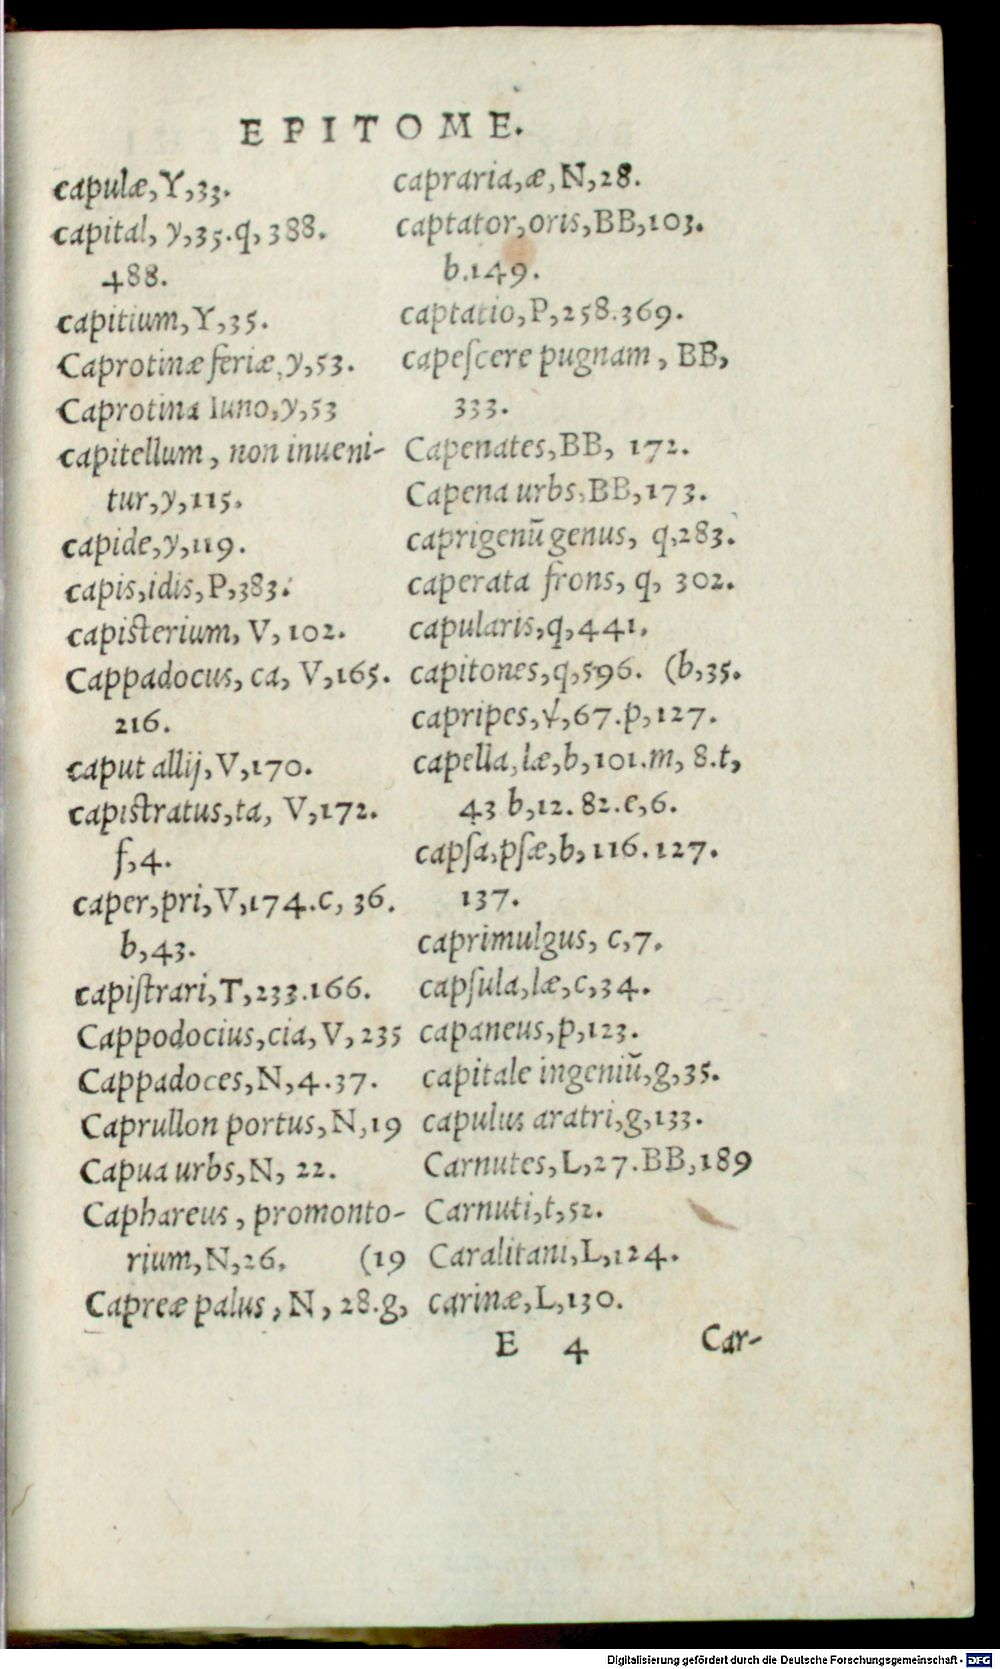 EPITOME.
capulæ, Y, 33.
capital, y, 35. q, 388.
488.
capitium, Y, 35.
Caprotinæ feriæ, y, 53.
Caprotina Iuno, y, 53
capitellum, non inueni-
tur, y, 115.
capide, y, 119.
capis, idis, P, 383.
capisterium, V, 102.
Cappadocus, ca, V, 165.
216.
caput allij, V, 170.
capistratus, ta, V, 172.
f, 4.
caper, pri, V, 174. c, 36.
b, 43.
capiſtrari, T, 233. 166.
Cappodocius, cia, V, 235
Cappadoces, N, 4. 37.
Caprullon portus, N, 19
Capua urbs, N, 22.
Caphareus, promonto-
rium, N, 26. (19
Capreæ palus, N, 28. g,
capraria, æ, N, 28.
captator, oris, BB, 103.
b. 149.
captatio, P, 258. 369.
capeſcere pugnam, BB,
333.
Capenates, BB, 172.
Capena urbs, BB, 173.
caprigenũ genus, q, 283.
caperata frons, q, 302.
capularis, q, 441.
capitones, q, 596. (b, 35.
capripes, ꝟ, 67. p, 127.
capella, læ, b, 101. m, 8. t,
43 b, 12. 82. e, 6.
capſa, pſæ, b, 116. 127.
137.
caprimulgus, c, 7.
capſula, læ, c, 34.
capaneus, p, 123.
capitale ingeniũ, g, 35.
capulus aratri, g, 133.
Carnutes, L, 27. BB, 189
Carnuti, t, 52.
Caralitani, L, 124.
carinæ, L, 130.
E 4 Car-
Digitalisierung gefördert durch die Deutsche Forschungsgemeinschaft - DFG